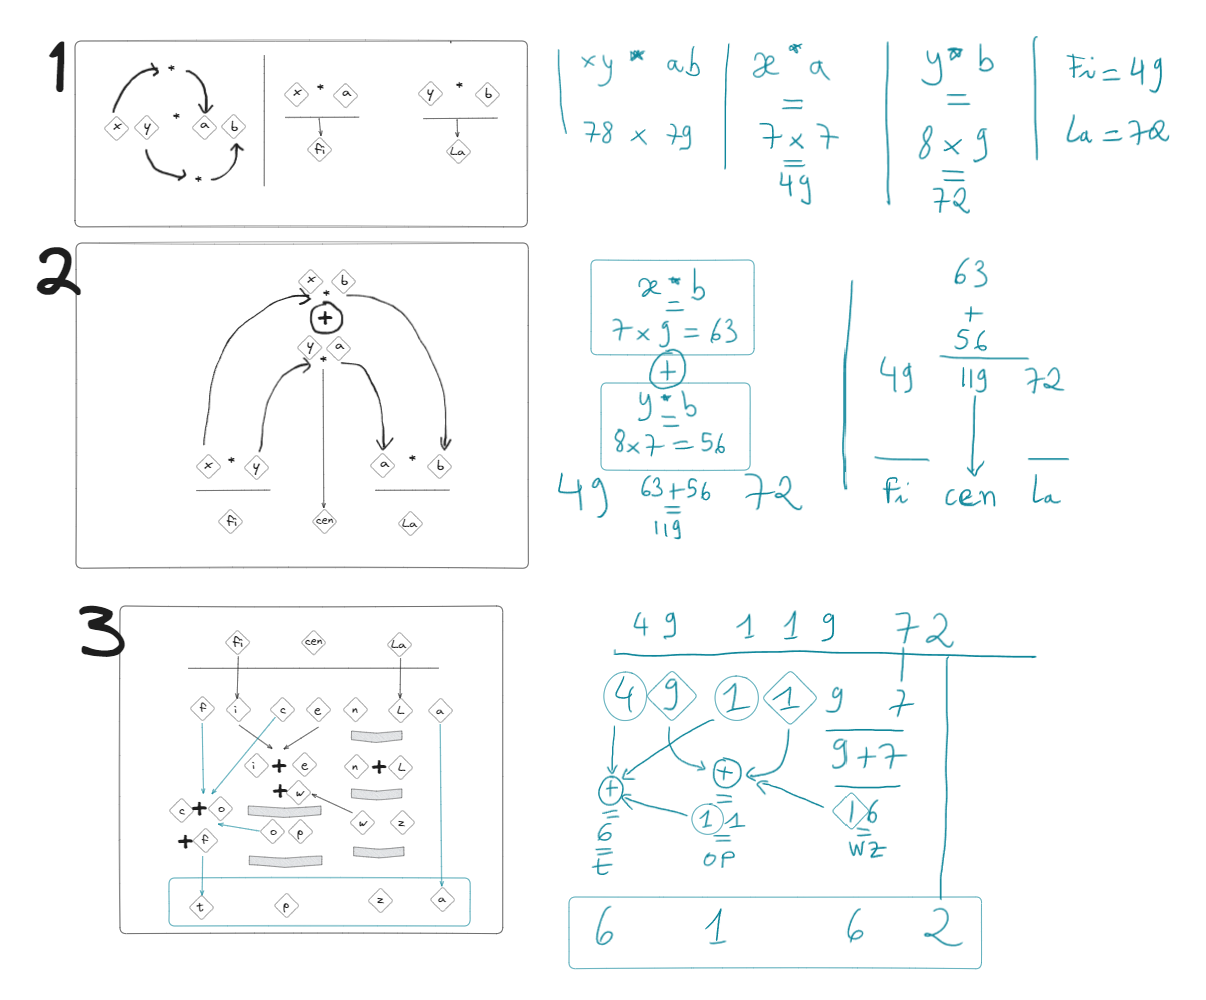 1
*
x y * a b
*
x * a
fi
y * b
La
xy * ab
78 x 79
x * a
=
7 x 7
=
49
y * b
=
8 x 9
=
72
Fi = 49
La = 72
2
x b
*
+
y a
*
x * y
a * b
fi cen La
x * b
=
7 x 9 = 63
+
y * b
=
8x7 = 56
49 63+56 72
=
119
63
+
56
49 119 72
Fi cen La
3
fi cen La
f i c e n L a
i + e
+ w
n + L
c + o
+ f
o p
w z
t p z a
49 119 72
4 9 1 1 9 7
9+7
+
=
6
=
t
+
=
11
=
op
16
=
wz
6 1 6 2